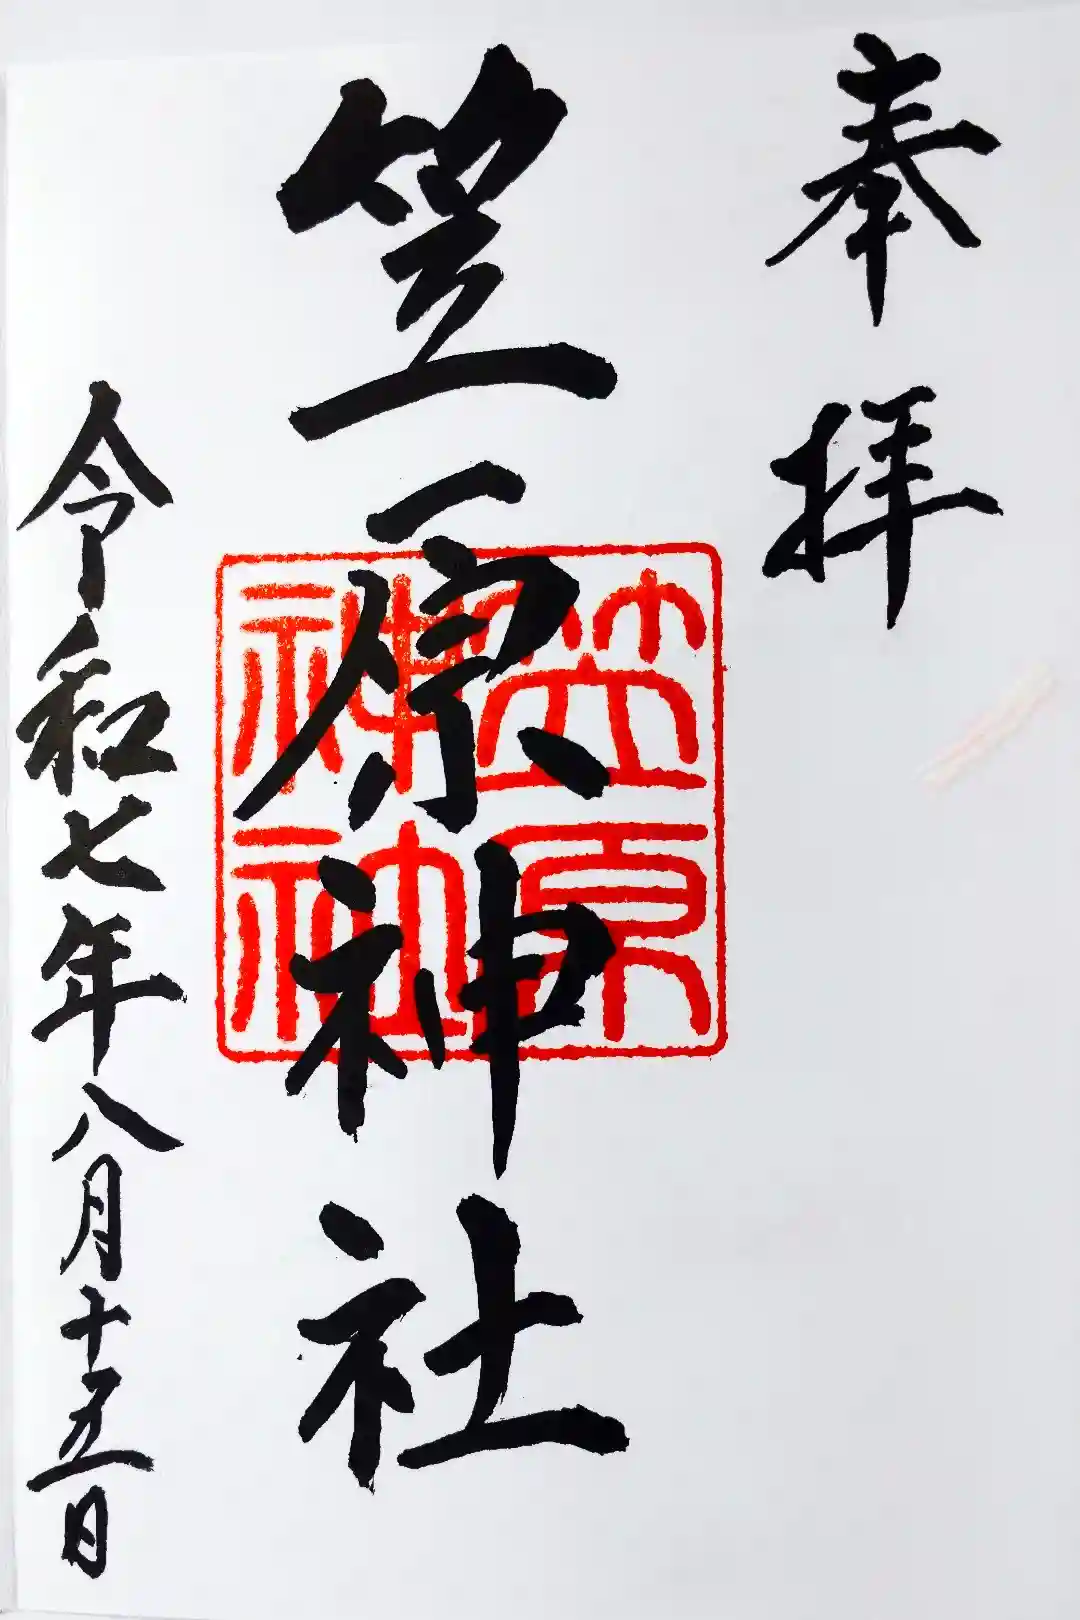 奉拝
笠原神社
笠原
神社
令和七年八月十五日